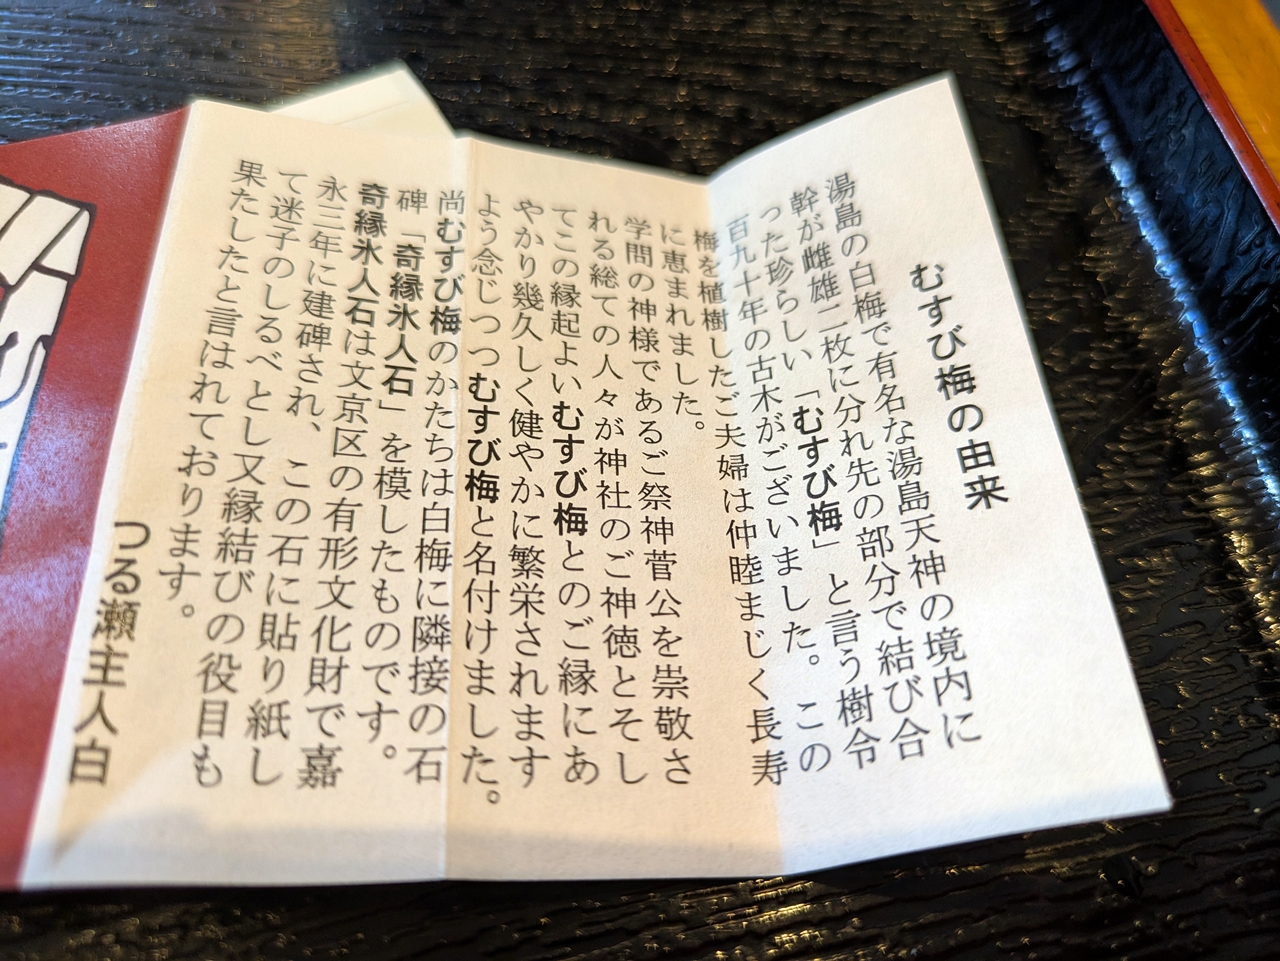 むすび梅の由来
湯島の白梅で有名な湯島天神の境内に
幹が雌雄二枚に分れ先の部分で結び合
った珍らしい「むすび梅」と言う樹令
百九十年の古木がございました。この
梅を植樹したご夫婦は仲睦まじく長寿
に恵まれました。
学問の神様であるご祭神菅公を崇敬さ
れる総ての人々が神社のご神徳とそし
てこの縁起よいむすび梅とのご縁にあ
やかり幾久しく健やかに繁栄されます
よう念じつつむすび梅と名付けました。
尚むすび梅のかたちは白梅に隣接の石
碑「奇縁氷人石」を模したものです。
奇縁氷人石は文京区の有形文化財で嘉
永三年に建碑され、この石に貼り紙し
て迷子のしるべとし又縁結びの役目も
果たしたと言はれております。
つる瀬主人白